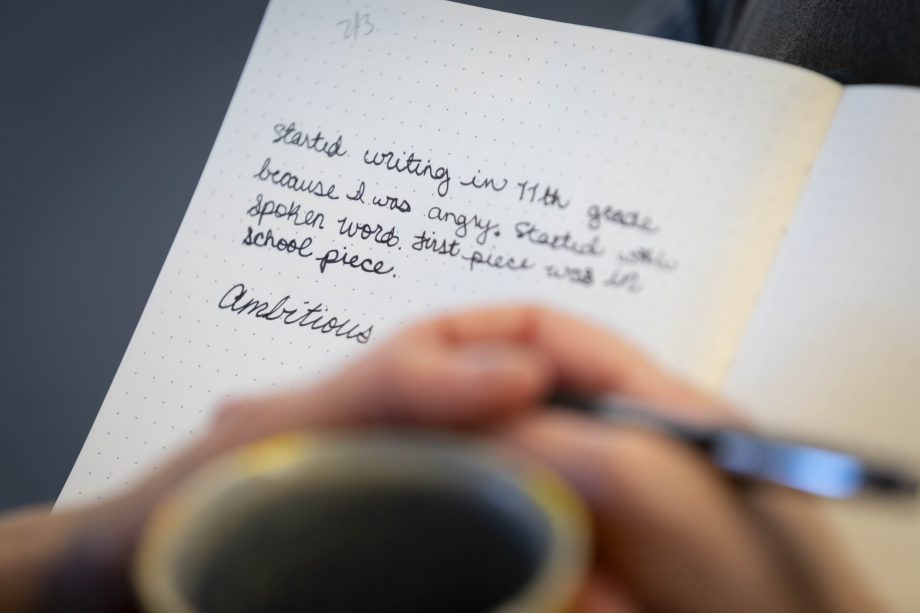 2/3
Started writing in 11th grade
because I was angry. Started with
spoken word. First piece was in
school piece.
Ambitious